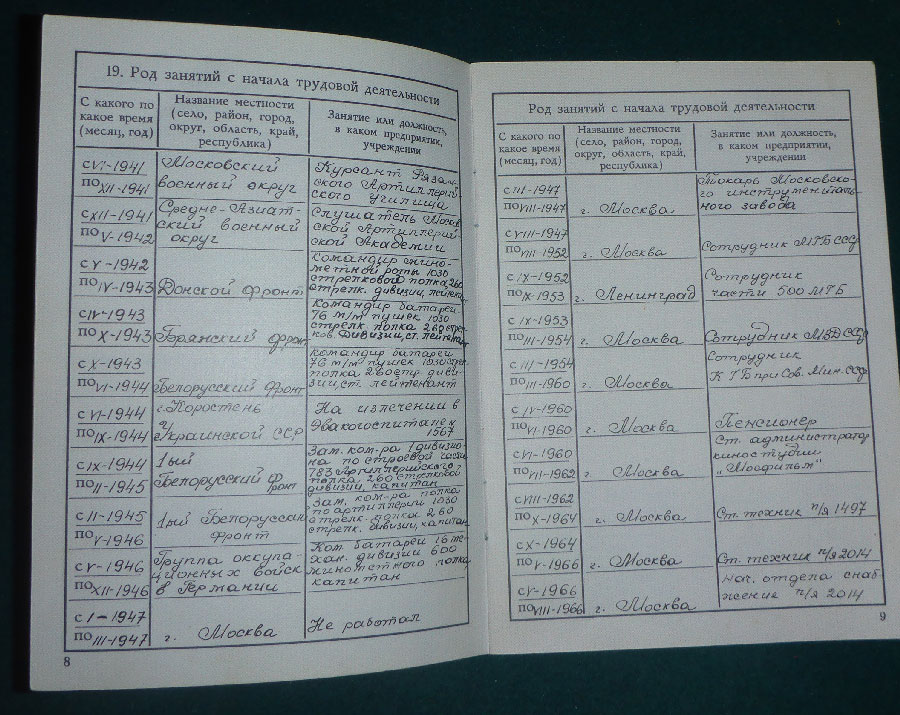 19. Род занятий с начала трудовой деятельности
С какого по
какое время
(месяц, год)
Название местности
(село, район, город,
округ, область, край,
республика)
Занятие или должность,
в каком предприятии,
учреждении
с VI-1941
по XII-1941
Московский
военный округ
Курсант Рязан-
ского Артиллерий-
ского училища
с XII-1941
по V-1942
Средне-Азиат-
ский военный
округ
Слушатель Моско
ской Артиллерий-
ской Академии
с V-1942
по IV-1943
Донской фронт
Командир мино-
метной роты 1030
стрелковой полка 260
стрелк. дивизии, лейтен
с IV-1943
по X-1943
Брянский фронт
Командир батареи
76 м/м пушек 1030
стрелк полка 260 стрел
ков. Дивизии, ст. лейтенант
с X-1943
по VI-1944
Белорусский фронт
Командир батареи
76 м/м пушек 1030 стр
полка 260 стр диви-
зии, ст. лейтенант
с VI-1944
по IX-1944
г. Коростень
Украинской ССР
На излечении в
Эвакогоспитале №
1567
с IX-1944
по II-1945
1ый
Белорусский фронт
Зам. ком-ра 1 дивизио-
на по строевой части
783 Артиллерийского
полка 260 стрелковой
дивизии, капитан
с II-1945
по V-1946
1ый Белорусский
фронт
Зам. ком-ра полка
по артиллерии 1030
стрелк. полка 260
стрелк. дивизии, капитан
с V-1946
по XII-1946
Группа оккупа-
ционных войск
в Германии
Ком. батареи 16 ме-
хан. дивизии 600
минометного полка,
капитан
с I-1947
по III-1947
г. Москва
Не работал
8
Род занятий с начала трудовой деятельности
С какого по
какое время
(месяц, год)
Название местности
(село, район, город,
округ, область, край,
республика)
Занятие или должность,
в каком предприятии,
учреждении
с III-1947
по VIII-1947
г. Москва.
Токарь Московско-
го инструменталь-
ного завода
с VIII-1947
по VIII 1952
г. Москва
Сотрудник МГБ СССР
с IX-1952
по X-1953
г. Ленинград
Сотрудник
части 500 МГБ
с IX-1953
по III-1954
г. Москва
Сотрудник МВД СССР
с III-1954
по III-1960
г. Москва
Сотрудник
КГБ при Сов. Мин. СССР
с IV-1960
по VI-1960
г. Москва
Пенсионер
с VI-1960
по VII-1962
г. Москва
Ст. администратор
киностудии
"Мосфильм"
с VIII-1962
по X-1964
г. Москва
Ст. техник п/я 1497
с X-1964
по V-1966
г. Москва
Ст. техник п/я 2014
с V-1966
по VIII-1966
г. Москва
Нач. отдела снаб
жение п/я 2014
9